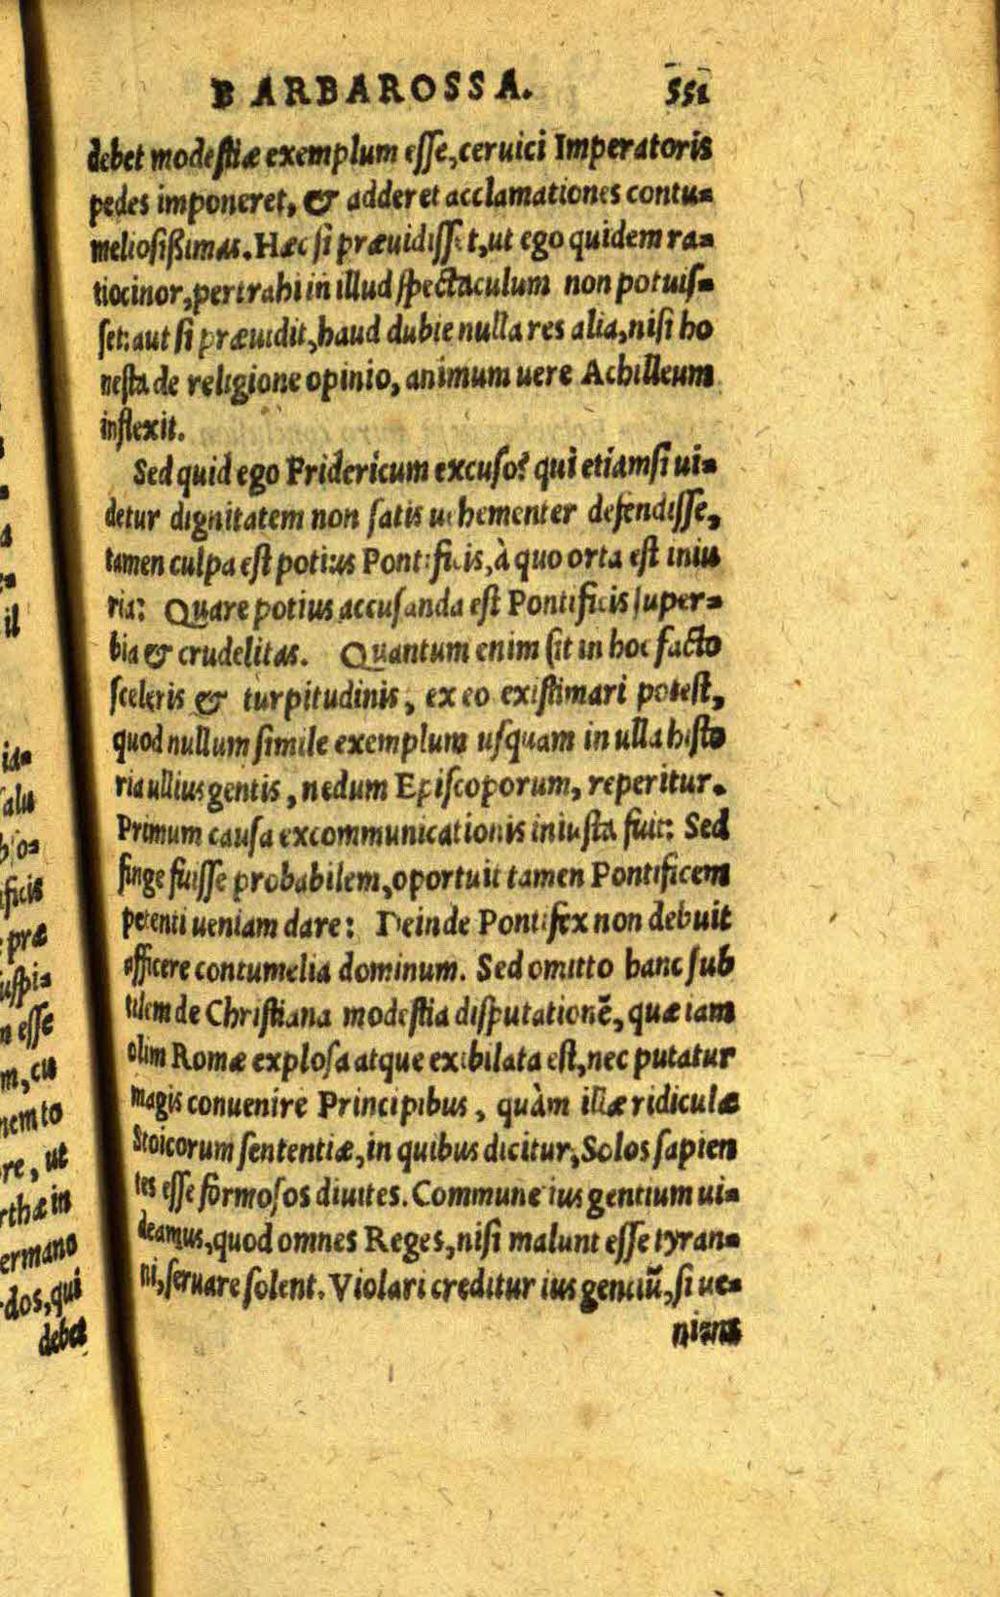 BARBAROSSA. 551
debet modestiæ exemplum esse, ceruici Imperatoris
pedes imponeret, & adderet acclamationes contu=
meliosißimas. Hæc si præuidisset, ut ego quidem ra=
tiocinor, pertrahi in illud spectaculum non potuis=
set: aut si præuidit, haud dubie nulla res alia, nisi ho
nesta de religione opinio, animum uere Achilleum
inflexit.
Sed quid ego Fridericum excuso? qui etiamsi ui=
detur dignitatem non satis uehementer defendisse,
tamen culpa est potius Pontificis, à quo orta est iniu
ria: Quare potius accusanda est Pontificis super=
bia & crudelitas. Quantum enim sit in hoc facto
sceleris & turpitudinis, ex eo existimari potest,
quod nullum simile exemplum usquam in ulla histo
ria ullius gentis, nedum Episcoporum, reperitur.
Primum causa excommunicationis iniusta fuit: Sed
finge fuisse probabilem, oportuit tamen Pontificem
petenti ueniam dare: Deinde Pontifex non debuit
afficere contumelia dominum. Sed omitto hanc sub
tilem de Christiana modestia disputationē, quæ iam
olim Romæ explosa atque exibilata est, nec putatur
magis conuenire Principibus, quàm illæ ridiculæ
Stoicorum sententiæ, in quibus dicitur, Solos sapien
tes esse formosos diuites. Commune ius gentium ui=
deamus, quod omnes Reges, nisi malunt esse tyran=
ni, seruare solent. Violari creditur ius gentiū, si ue=
niens
ida=
il
ficis
præ
uspi=
n esse
m, cu
nem to
re, ut
rthæ in
ermano
dos, qui
debet